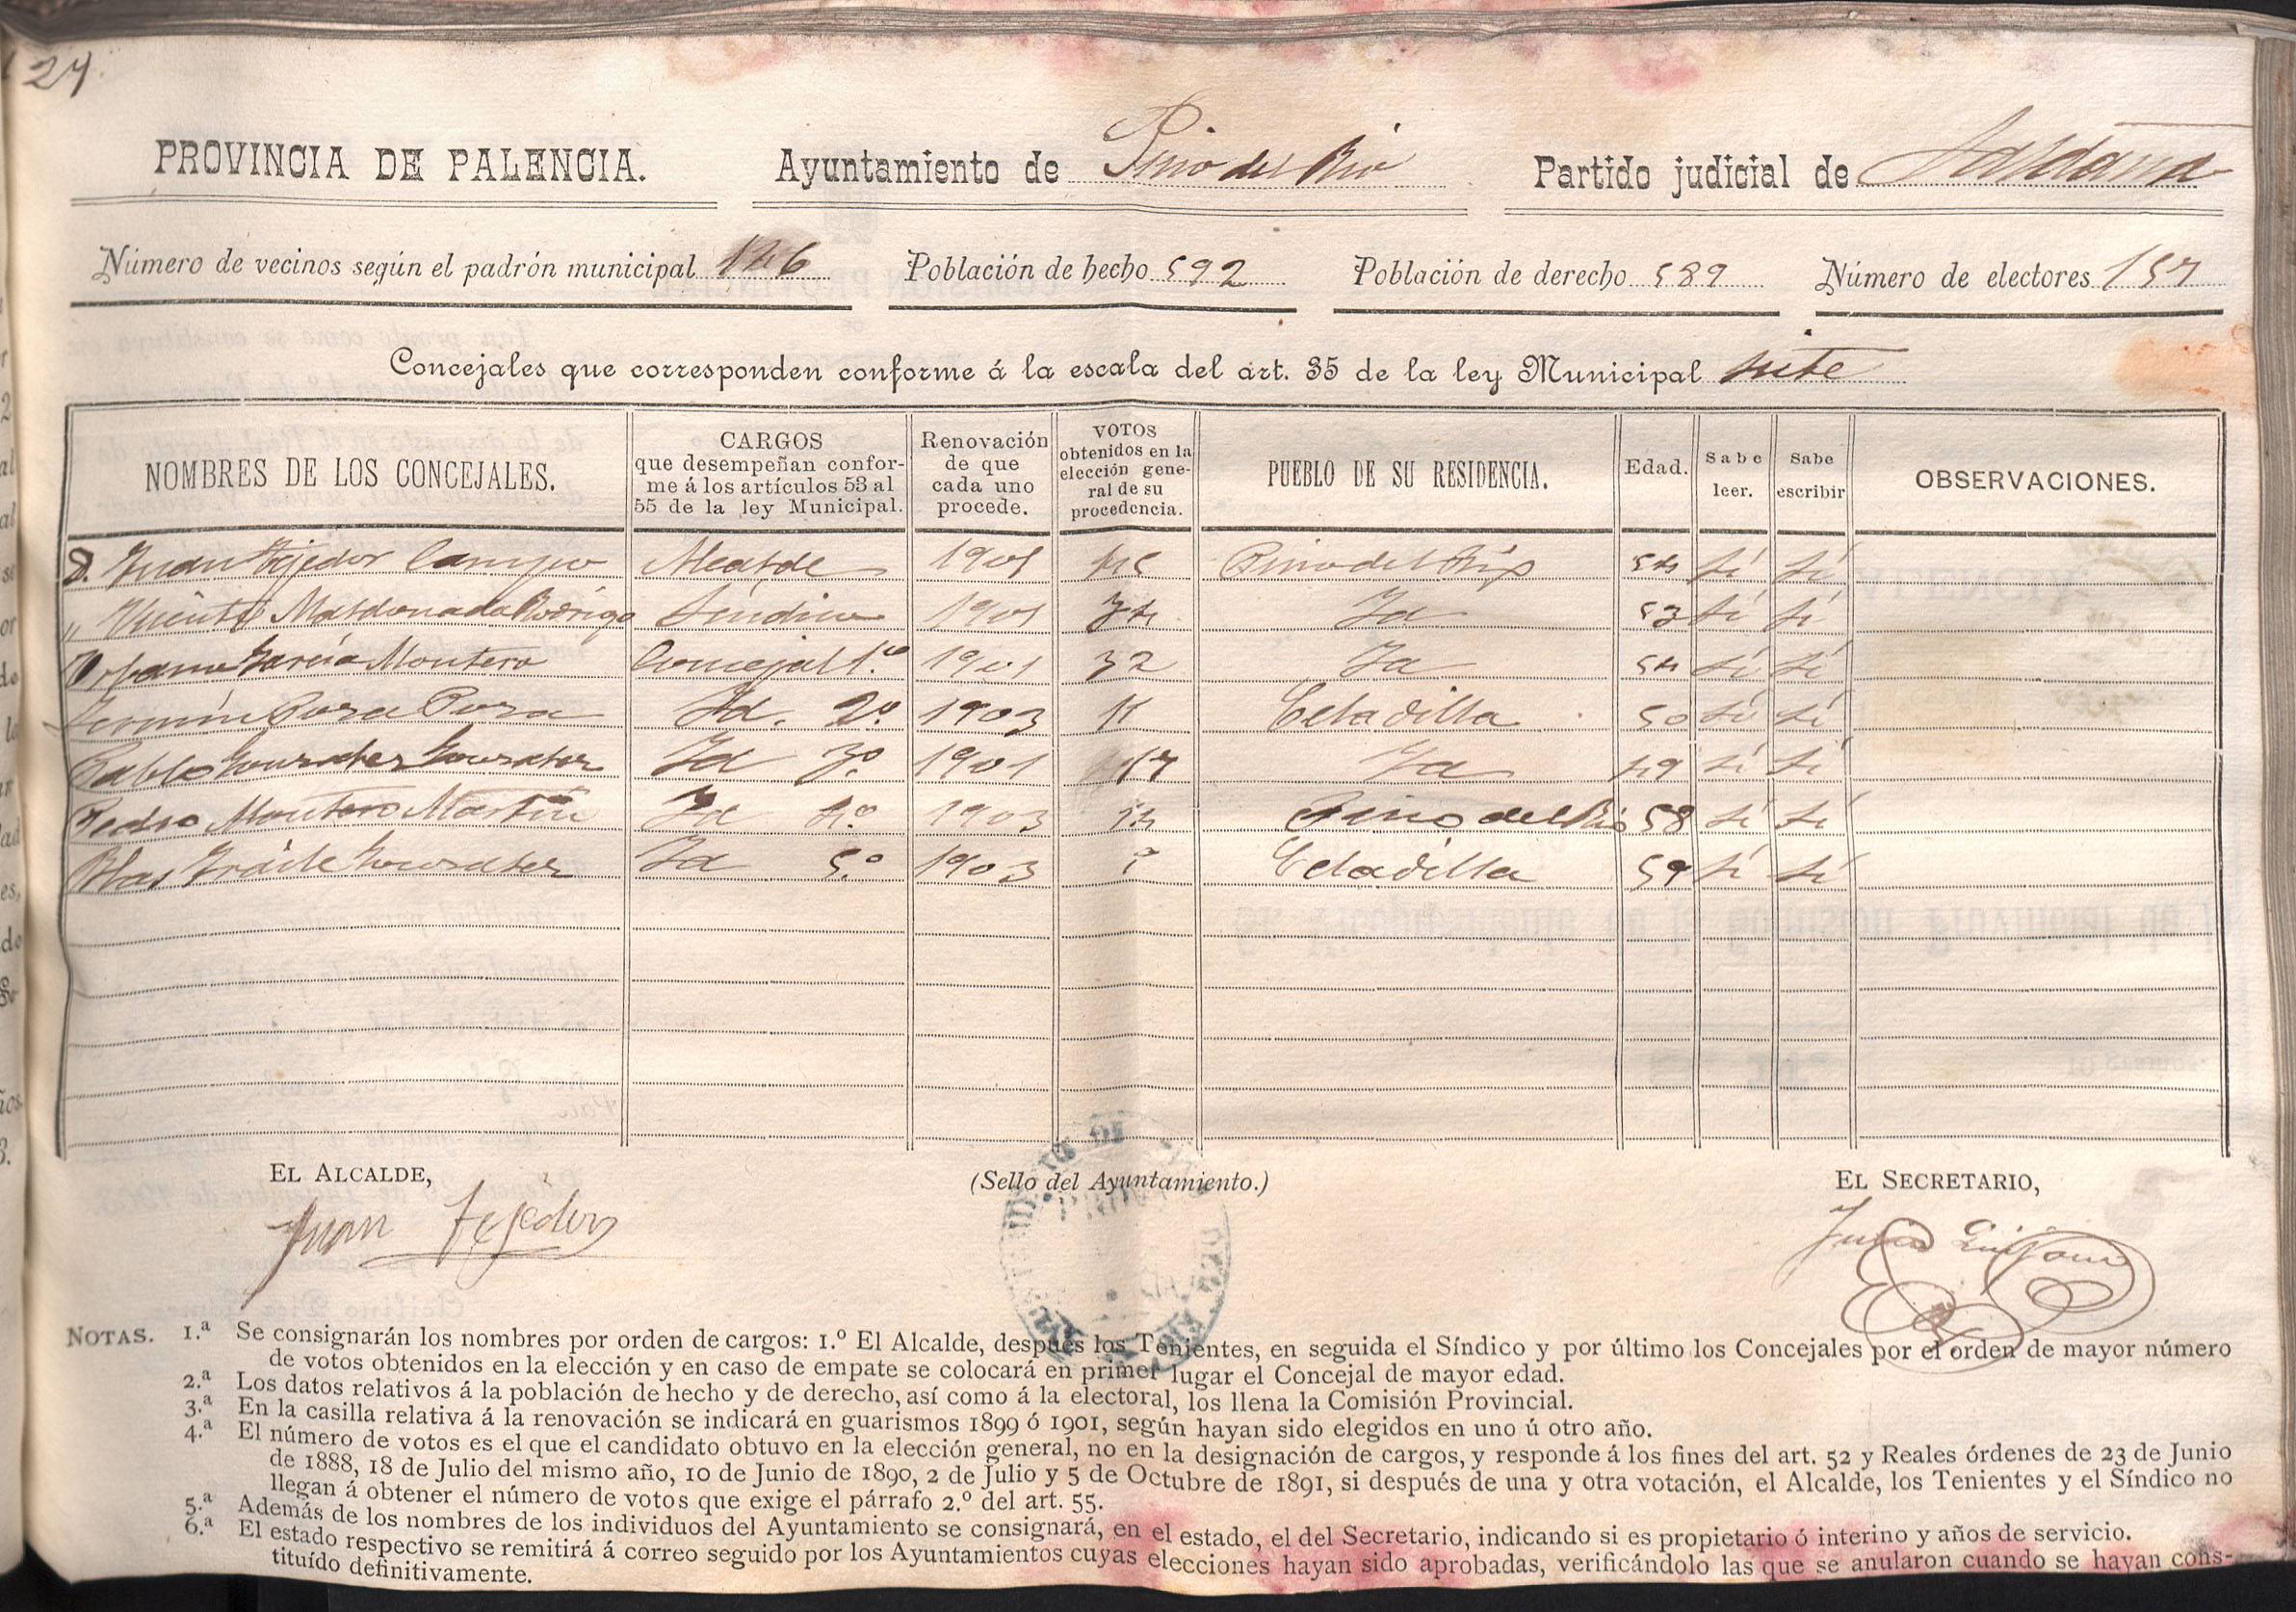 24
PROVINCIA DE PALENCIA. Ayuntamiento de Pino del Rio Partido judicial de Saldaña
Número de vecinos según el padrón municipal 146 Población de hecho 592 Población de derecho 589 Número de electores 157
Concejales que corresponden conforme á la escala del art. 35 de la ley Municipal siete
NOMBRES DE LOS CONCEJALES. CARGOS que desempeñan conforme á los artículos 53 al 55 de la ley Municipal. Renovación de que cada uno procede. VOTOS obtenidos en la elección general de su procedencia. PUEBLO DE SU RESIDENCIA. Edad. Sabe leer. Sabe escribir OBSERVACIONES.
D. Juan Tejedor Campo Alcalde 1901 Pino del Rio 54 sí sí
" Vicente Maldonado Rodrigo Síndico 1901 34 Id 53 sí sí
Urbano García Montero Concejal 1.º 1901 32 Id 54 sí sí
Fermín Poza Poza Id. 2º 1903 11 Celadilla 50 sí sí
Pablo Gonzalez Gonzalez Id 3º 1901 17 Id 49 sí sí
Pedro Montero Martín Id 4º 1903 14 Pino del Rio 58 sí sí
Blas Fraile Gonzalez Id 5º 1903 Celadilla 59 sí sí
EL ALCALDE, (Sello del Ayuntamiento.) EL SECRETARIO,
Juan Tejedor
NOTAS. 1.ª Se consignarán los nombres por orden de cargos: 1.º El Alcalde, después los Tenientes, en seguida el Síndico y por último los Concejales por el orden de mayor número
de votos obtenidos en la elección y en caso de empate se colocará en primer lugar el Concejal de mayor edad.
2.ª Los datos relativos á la población de hecho y de derecho, así como á la electoral, los llena la Comisión Provincial.
3.ª En la casilla relativa á la renovación se indicará en guarismos 1899 ó 1901, según hayan sido elegidos en uno ú otro año.
4.ª El número de votos es el que el candidato obtuvo en la elección general, no en la designación de cargos, y responde á los fines del art. 52 y Reales órdenes de 23 de Junio
de 1888, 18 de Julio del mismo año, 10 de Junio de 1890, 2 de Julio y 5 de Octubre de 1891, si después de una y otra votación, el Alcalde, los Tenientes y el Síndico no
llegan á obtener el número de votos que exige el párrafo 2.º del art. 55.
5.ª Además de los nombres de los individuos del Ayuntamiento se consignará, en el estado, el del Secretario, indicando si es propietario ó interino y años de servicio.
6.ª El estado respectivo se remitirá á correo seguido por los Ayuntamientos cuyas elecciones hayan sido aprobadas, verificándolo las que se anularon cuando se hayan cons-
tituído definitivamente.